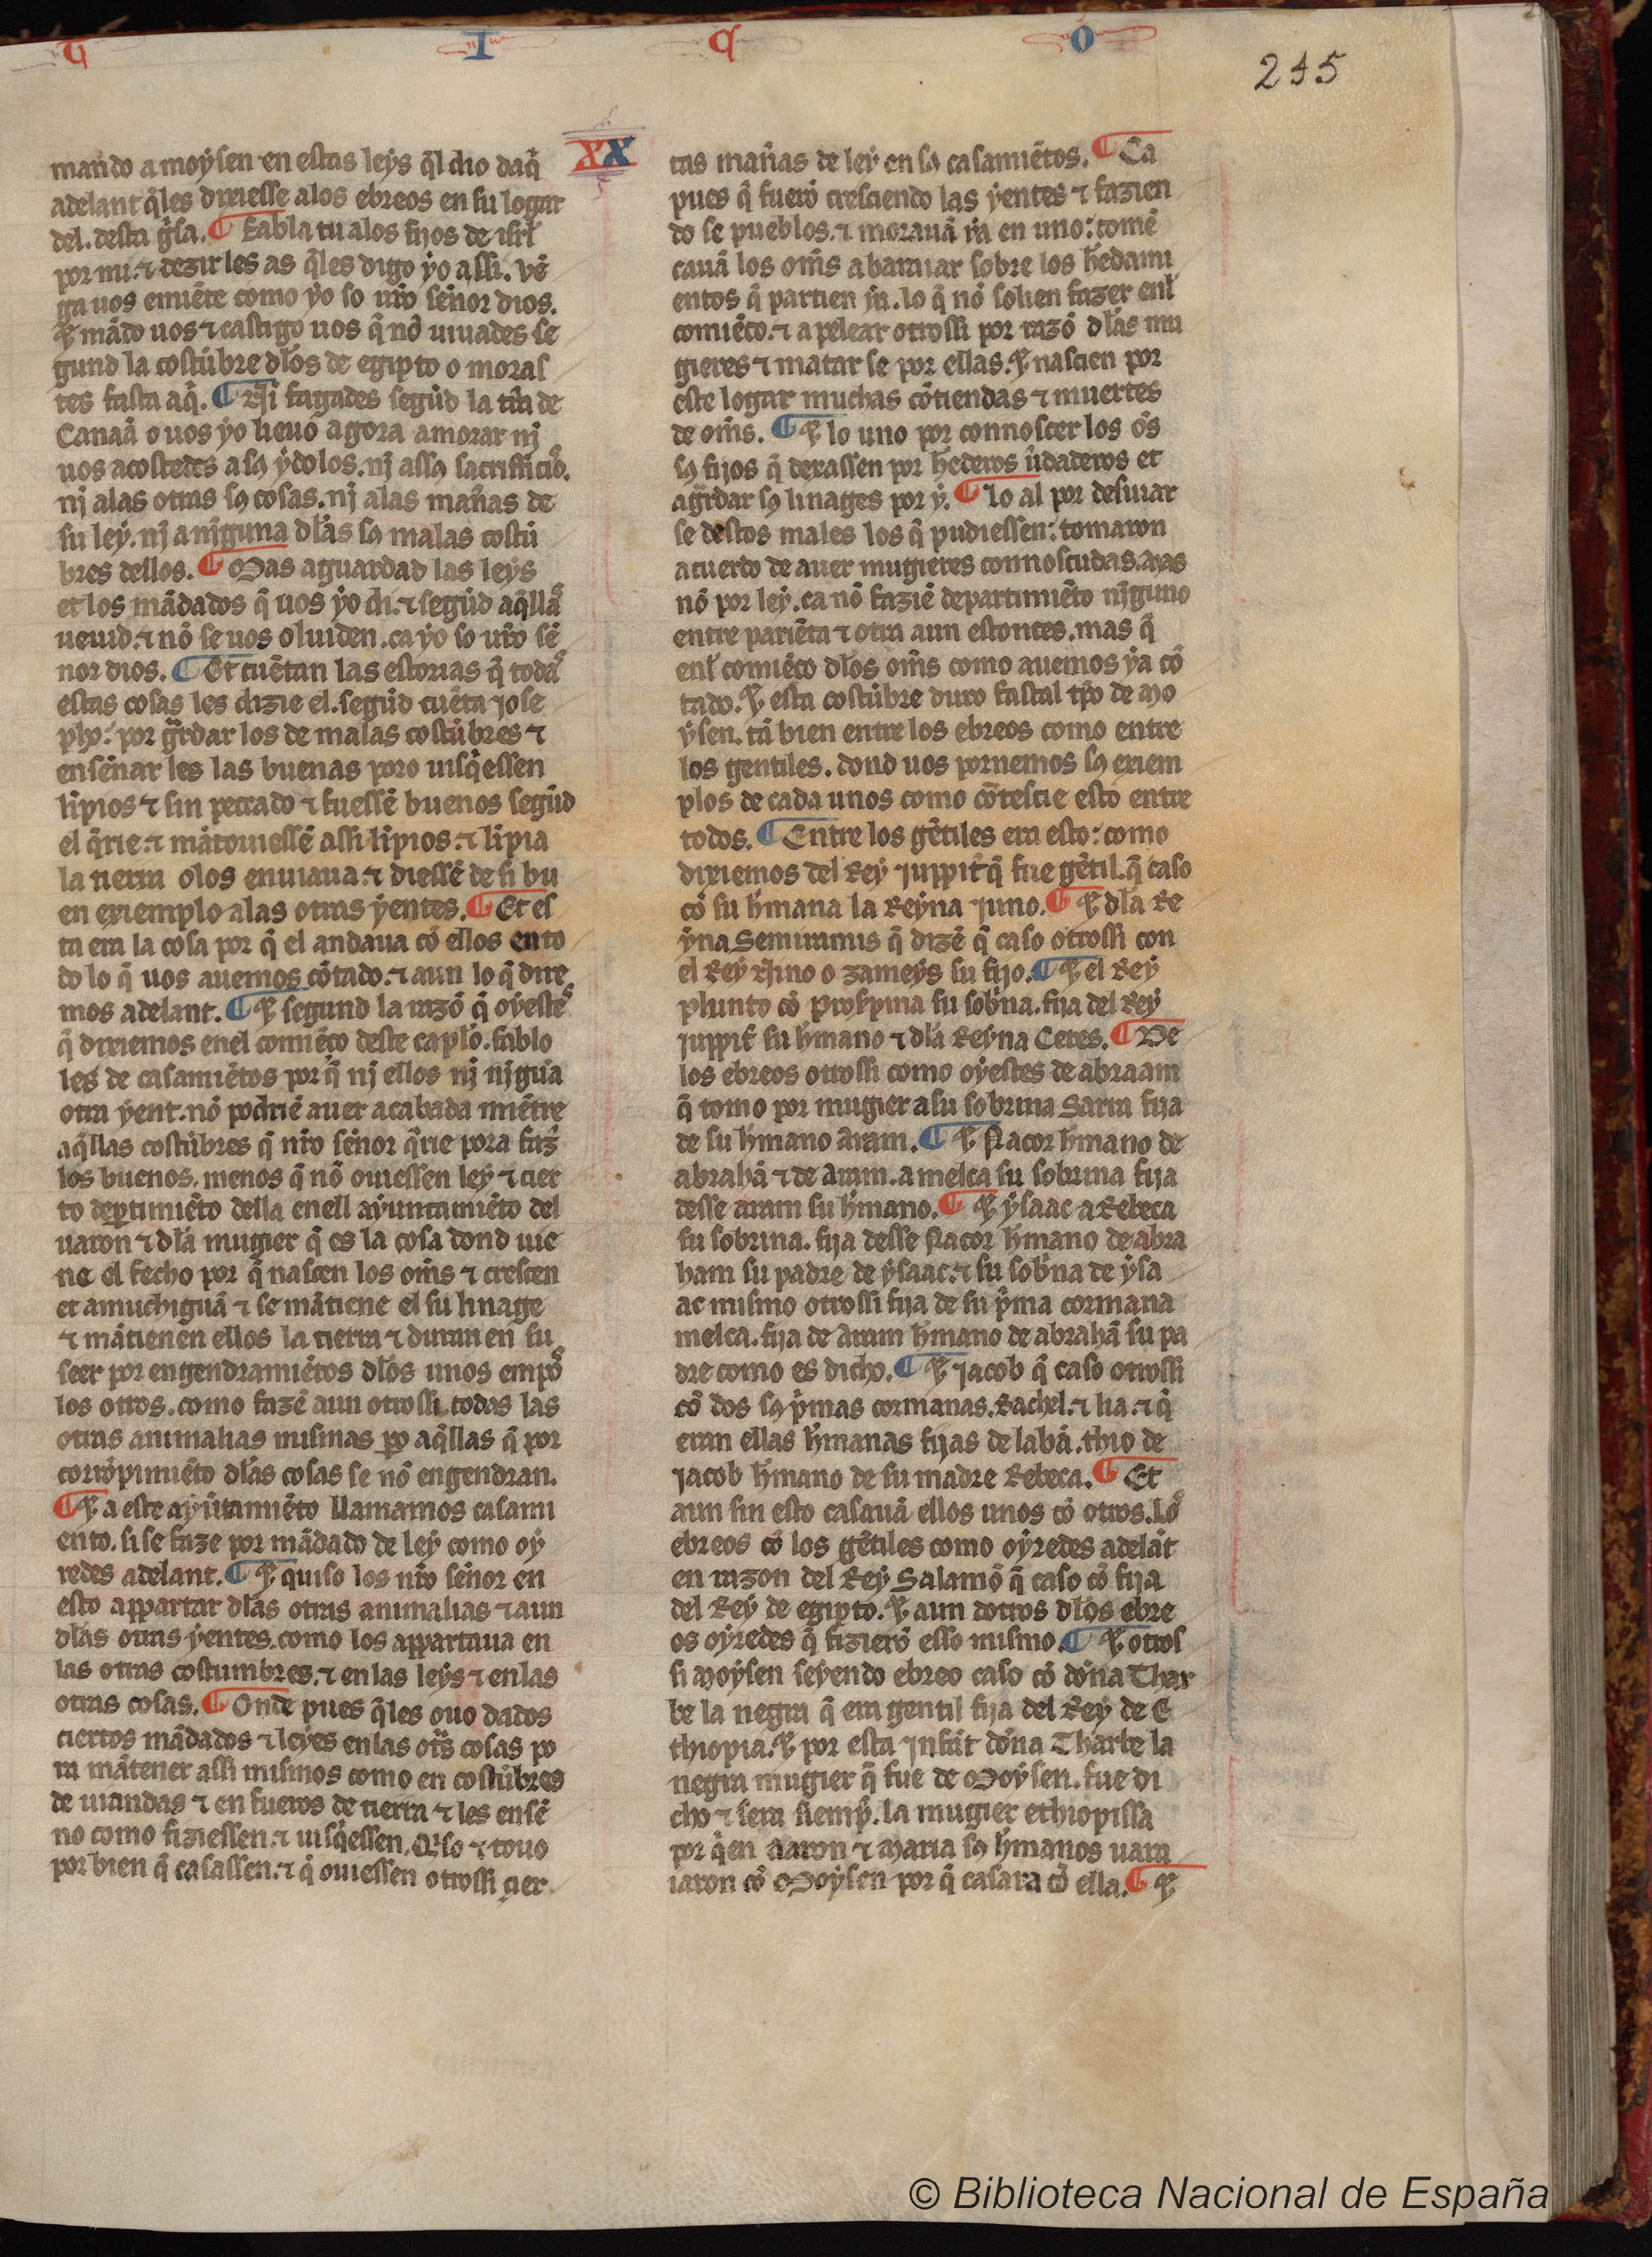 U I C O
245
XX
mando a moysen en estas leys q̃l dio daq̃
adelant q̃les dixiesse alos ebreos en su logar
del. desta gͥsa. ¶ Fabla tu alos fijos de isrl̃
por mi. ⁊ dezir les as q̃les digo yo assi. vẽ
ga uos emiẽte como yo so ur̃o sẽnor dios.
⁊ mãdo uos ⁊ castigo uos q̃ nõ uiuades se
gund la costũbre dlos de egipto o moras
tes fasta aq̃. ¶ Nj fagades segũd la tr̃a de
Canaã o uos yo lieuo agora a morar nj
uos acostedes a sꝯ ydolos. nj assꝯ sacrifficios.
nj alas otras sꝯ cosas. nj alas mañas de
su ley. nj a njguna dlas sꝯ malas costũ
bres dellos. ¶ Mas aguardad las leys
et los mãdados q̃ uos yo di. ⁊ segũd aq̃llas
ueuid. ⁊ nõ se uos oluiden. ca yo so ur̃o sẽ
nor dios. ¶ Et cuẽtan las estorias q̃ todas
estas cosas les dizie el. segũd cuẽta jose
pho: por gᷓrdar los de malas costũbres ⁊
ensẽnar les las buenas poro uisq̃essen
lĩpios ⁊ sin peccado ⁊ fuessẽ buenos segũd
el q̃rie. ⁊ mãtouiessẽ assi lĩpios. ⁊ lĩpia
la tierra olos enuiaua. ⁊ diessẽ de si bu
en exiemplo alas otras yentes. ¶ Et es
ta era la cosa por q̃ el andaua cõ ellos en to
do lo q̃ uos auemos cõtado. ⁊ aun lo q̃ dire
mos adelant. ¶ ⁊ segund la razõ q̃ oyestes
q̃ dixiemos enel comiẽço deste caplo. fablo
les de casamiẽtos por q̃ nj ellos nj njgũa
otra yent. nõ podriẽ auer acabada miẽtre
aq̃llas costũbres q̃ nr̃o sẽnor q̃rie pora faz̃
los buenos. menos q̃ nõ ouiessen ley ⁊ cier
to deꝑtimiẽto della enell ayuntamiẽto del
uaron ⁊ dla mugier q̃ es la cosa dond uie
ne el fecho por q̃ nascen los om̃s ⁊ crescen
et amuchiguã ⁊ se mãtiene el su linage
⁊ mãtienen ellos la tierra ⁊ duran en su
seer por engendramiẽtos dlos unos empos
los otros. como fazẽ aun otrossi todas las
otras animalias mismas po aq̃llas q̃ por
corrõpimiẽto dlas cosas se nõ engendran.
¶ ⁊ a este ayũtamiẽto llamamos casami
ento. si se faze por mãdado de ley como oy
redes adelant. ¶ ⁊ quiso los nr̃o sẽnor en
esto appartar dlas otras animalias ⁊ aun
dlas otras yentes. como los appartaua en
las otras costumbres. ⁊ en las leys ⁊ en las
otras cosas. ¶ Onde pues q̃les ouo dados
ciertos mãdados ⁊ leyes en las otᷓs cosas po
ra mãtener assi mismos como en costũbres
de uiandas ⁊ en fueros de tierra ⁊ les ensẽ
no como fiziessen. ⁊ uisq̃essen. Qͥso ⁊ touo
por bien q̃ casassen. ⁊ q̃ ouiessen otrossi cier
tas mañas de ley en sꝯ casamiẽtos. ¶ Ca
pues q̃ fuerõ cresciendo las yentes ⁊ fazien
do se pueblos. ⁊ morauã ya en uno: comẽ
çauã los om̃s a baraiar sobre los h̃edami
entos q̃ partien ya. lo q̃ nõ solien fazer enl
comiẽço. ⁊ a pelear otrossi por razõ dlas mu
gieres ⁊ matar se por ellas. ⁊ nascien por
este logar muchas cõtiendas ⁊ muertes
de om̃s. ¶ ⁊ lo uno por connoscer los õs
sꝯ fijos q̃ dexassen por h̃ederos ũdaderos et
agᷓrdar sꝯ linages por y. ¶ Lo al por desuiar
se destos males los q̃ pudiessen: tomaron
acuerdo de auer mugieres connosçudas. mas
nõ por ley. ca nõ faziẽ departimiẽto njguno
entre pariẽta ⁊ otra aun estonces. mas q̃
enl comiẽço dlos om̃s como auemos ya cõ
tado. ⁊ esta costũbre duro fastal tp̃o de mo
ysen. tã bien entre los ebreos como entre
los gentiles. dond uos pornemos sꝯ exiem
plos de cada unos como cõtescie esto entre
todos. ¶ Entre los gẽtiles era esto: como
dixiemos del Rey juppit̃ q̃ fue gẽtil. q̃ caso
cõ su h̃mana la Reyna juno. ¶ ⁊ dla Re
yna Semiramis q̃ dizẽ q̃ caso otrossi con
el Rey Nino o zameys su fijo. ¶ ⁊ el Rey
plunto cõ Pros̃pina su sobͥna. fija del Rey
juppit̃ su h̃mano ⁊ dla Reyna Ceres. ¶ De
los ebreos otrossi como oyestes de abraam
q̃ tomo por mugier a su sobrina Sarra fija
de su h̃mano Aram. ¶ ⁊ Nacor h̃mano de
abrahã ⁊ de Aram. a melca su sobrina fija
desse aram su h̃mano. ¶ ⁊ ysaac a Rebeca
su sobrina. fija desse Nacor h̃mano de abra
ham su padre de ysaac. ⁊ su sobͥna de ysa
ac mismo otrossi fija de su pͥma cormana
melca. fija de Aram h̃mano de abrahã su pa
dre como es dicho. ¶ ⁊ Jacob q̃ caso otrossi
cõ dos sꝯ pͥmas cormanas. Rachel. ⁊ lia. ⁊ q̃
eran ellas h̃manas fijas de labã. thio de
Jacob h̃mano de su madre Rebeca. ¶ Et
aun sin esto casauã ellos unos cõ otros. Los
ebreos cõ los gẽtiles como oyredes adelãt
en razon del Rey Salamõ q̃ caso cõ fija
del Rey de egipto. ⁊ aun dotros dlos ebre
os oyredes q̃ fizierõ esso mismo. ¶ ⁊ otros
si Moysen seyendo ebreo caso cõ dõna Thar
be la negra q̃ era gentil fija del Rey de E
thiopia. ⁊ por esta jnfãt dõna Tharbe la
negra mugier q̃ fue de Moysen. fue di
cho ⁊ sera siemp̃. la mugier ethiopissa
por q̃en Aaron ⁊ Maria sꝯ h̃manos uara
iaron cõ Moysen por q̃ casara cõ ella. ¶ ⁊
© Biblioteca Nacional de España